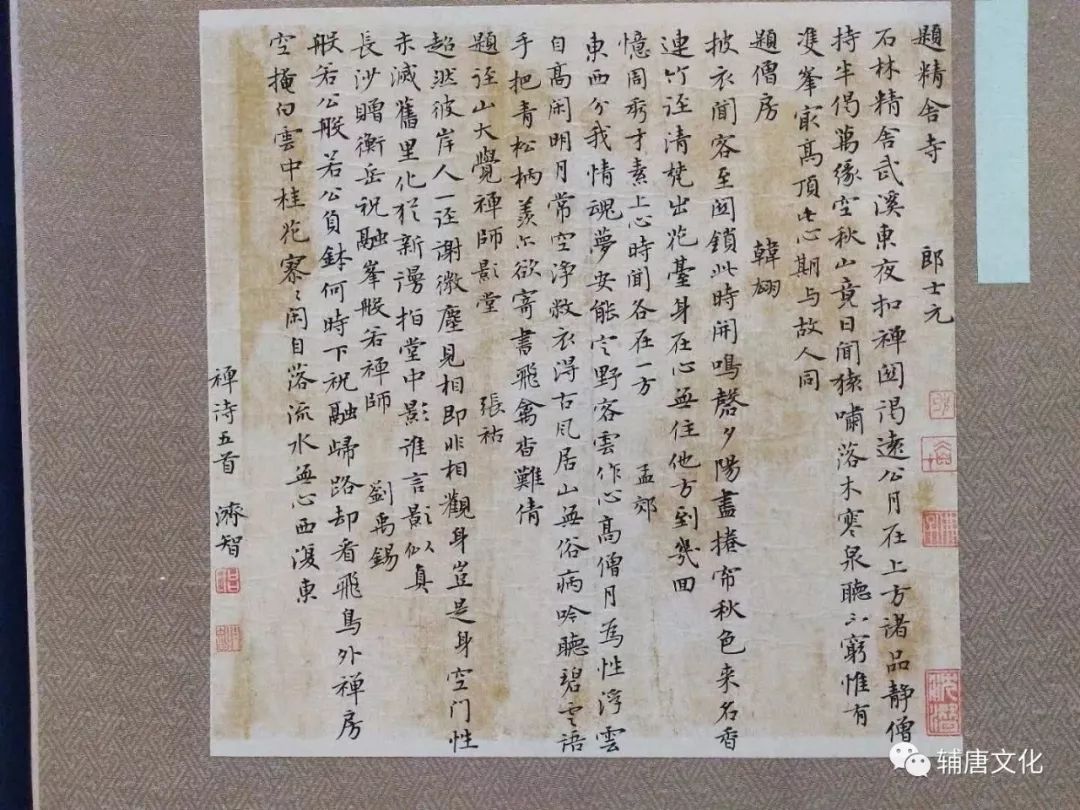 題精舍寺 郎士元
石林精舍武溪東夜扣禅関謁遠公月在上方諸品静僧
持半偈萬緣空秋山竟日聞猿嘯落木寒泉聽不窮惟有
雙峯最高頂此心期与故人同
題僧房 韓翃
披衣聞客至関鎖此時開鳴磬夕陽盡捲帘秋色来名香
連竹逕清梵出花臺身在心無住他方到幾回
憶周秀才素上人時聞各在一方 孟郊
東西分我情魂夢安能定野客雲作心高僧月為性浮雲
自高闲明月常空浄救衣得古风居山無俗病吟聽碧雲語
手把青松柄羡尓欲寄書飛禽杳難倩
題逕山大覺禅師影堂 張祜
超然彼岸人一逕謝微塵見相即非相觀身豈是身空门性
未滅舊里化猶新謾指堂中影誰言影似真
長沙贈衡岳祝融峯般若禅師 劉禹錫
般若公般若公負鉢何時下祝融歸路却看飛鳥外禅房
空掩白雲中桂花寥〻闲自落流水無心西復東
禅诗五首 濟智
辅唐文化